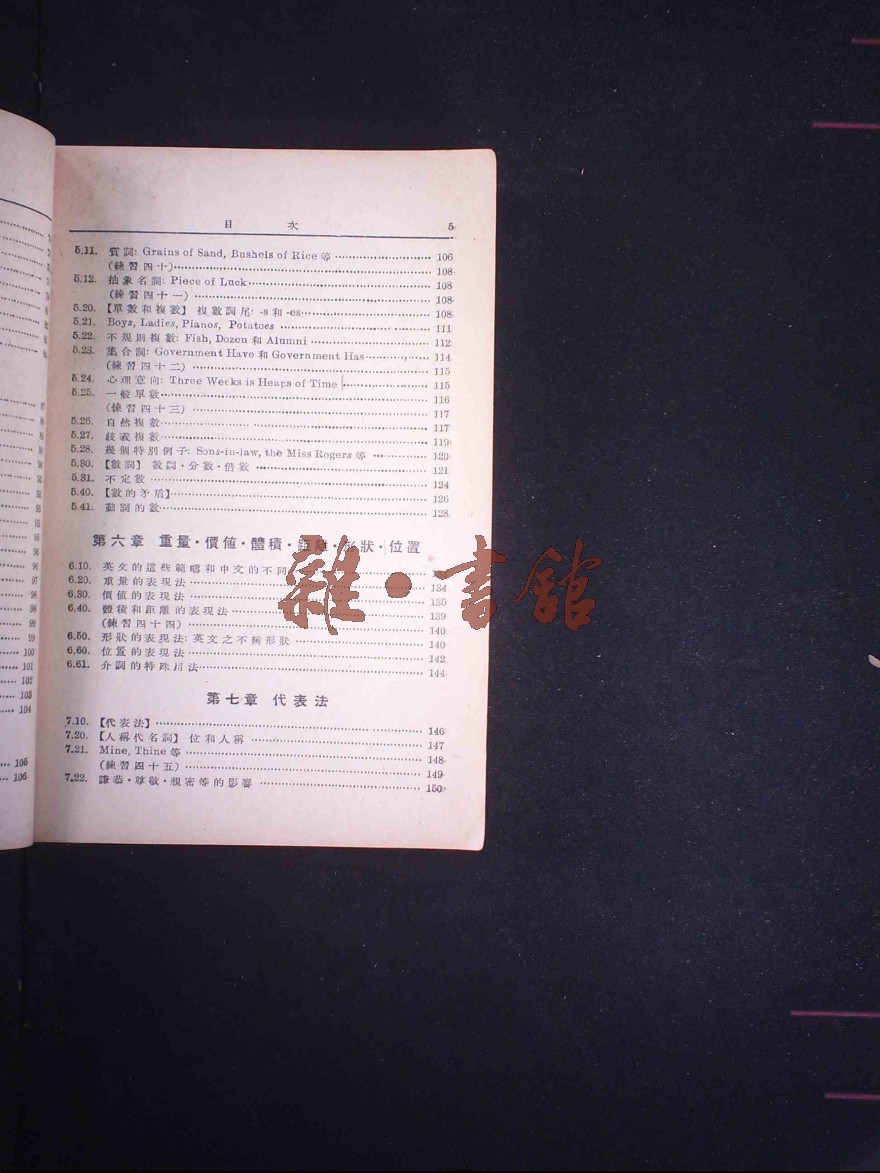 目 次 5
5.11. 質詞: Grains of Sand, Bushels of Rice 等 106
(練習四十) 108
5.12. 抽象名詞: Piece of Luck 108
(練習四十一) 108
5.20. 【單數和複數】 複數詞尾: -s 和 -es 108
5.21. Boys, Ladies, Pianos, Potatoes 111
5.22. 不規則複數: Fish, Dozen 和 Alumni 112
5.23. 集合詞: Government Have 和 Government Has 114
(練習四十二) 115
5.24. 心理意向: Three Weeks is Heaps of Time 115
5.25. 一般單數 116
(練習四十三) 117
5.26. 自然複數 117
5.27. 歧義複數 119
5.28. 幾個特別例子: Sons-in-law, the Miss Rogers 等 120
5.30. 【數詞】 數詞·分數·倍數 121
5.31. 不定數 124
5.40. 【數的矛盾】 126
5.41. 動詞的數 128
第六章 重量·價值·體積·距離·形狀·位置
6.10. 英文的這些範疇和中文的不同
6.20. 重量的表現法 134
6.30. 價值的表現法 135
6.40. 體積和距離的表現法 139
(練習四十四) 140
6.50. 形狀的表現法: 英文之不稱形狀 140
6.60. 位置的表現法 142
6.61. 介詞的特殊用法 144
第七章 代表法
7.10. 【代表法】 146
7.20. 【人稱代名詞】 位和人稱 147
7.21. Mine, Thine 等 148
(練習四十五) 149
7.22. 謙恭·尊敬·親密等的影響 150
97
98
98
99
99
100
101
102
103
104
105
106
雜·書館